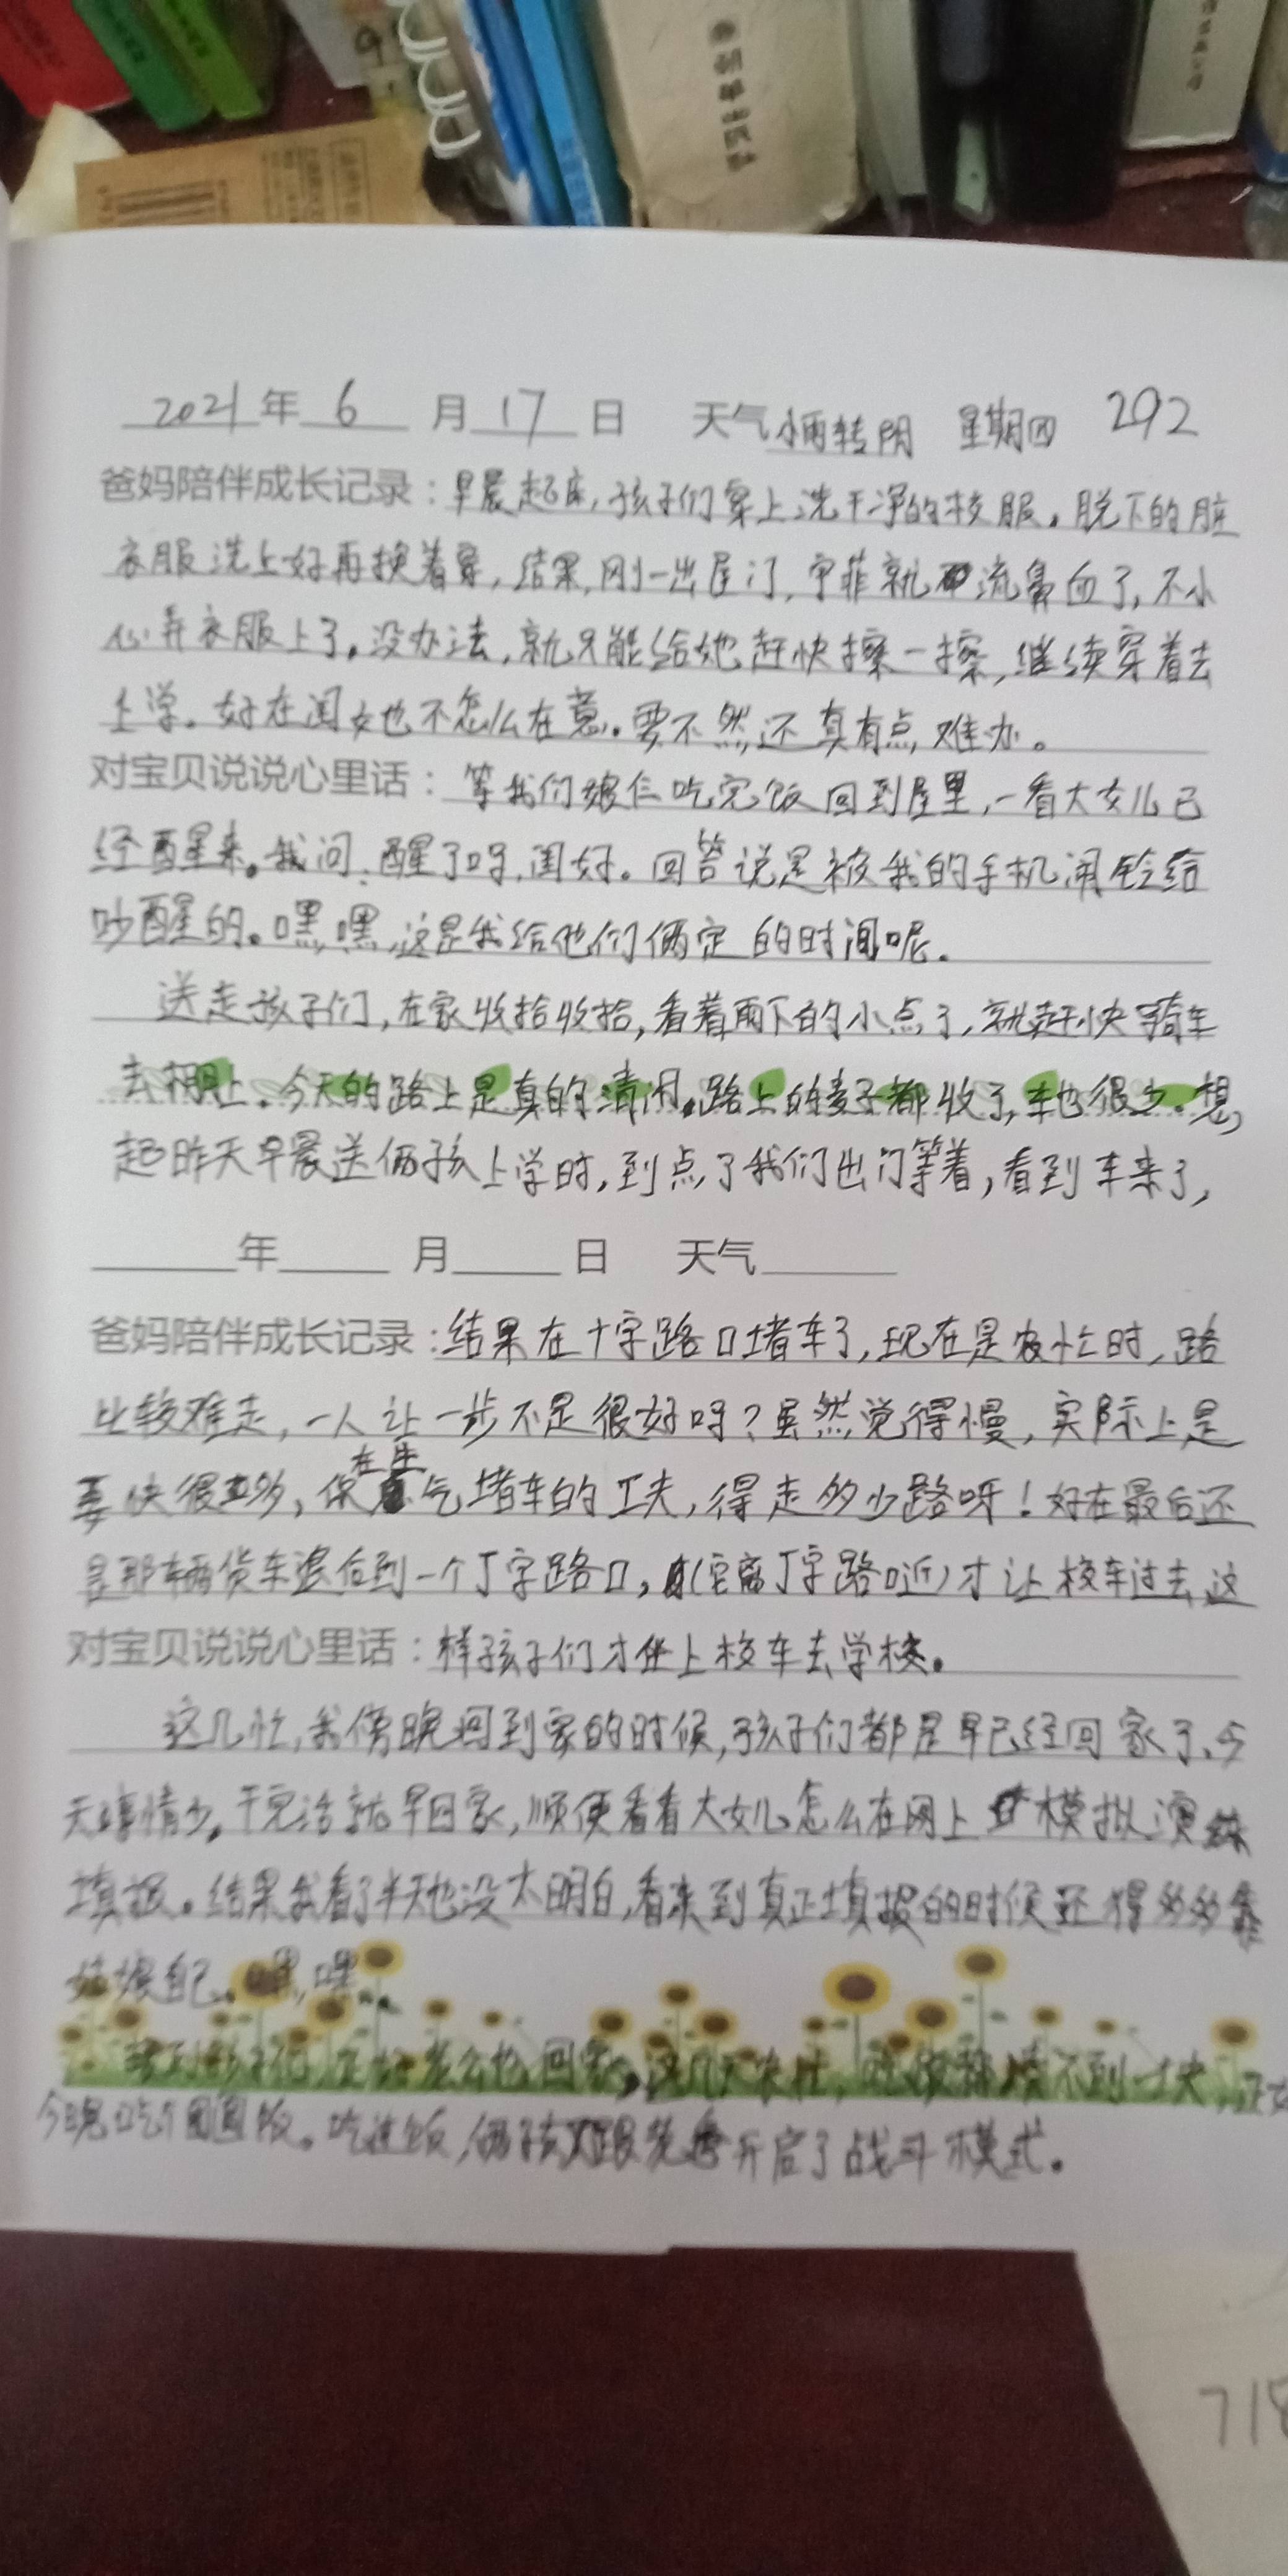 2021年6月17日 天气小雨转阴 星期四 292
爸妈陪伴成长记录：早晨起床，孩子们穿上洗干净的校服，脱下的脏
衣服洗上好再换着穿，结果，刚一出屋门，宇菲就流鼻血了，不小
心弄衣服上了。没办法，就只能给她赶快擦一擦，继续穿着去
上学。好在闺女也不怎么在意。要不然，还真有点难办。
对宝贝说说心里话：等我们娘仨吃完饭回到屋里，一看大女儿已
经醒来。我问：醒了吗，闺女。回答说是被我的手机闹铃给
吵醒的。嘿，嘿，这是我给他们俩定的时间呢。
送走孩子们，在家收拾收拾，看着雨下的小点了，就赶快骑车
去棚上。今天的路上是真的清闲。路上的麦子都收了，车也很少。想
起昨天早晨送俩孩上学时，到点了我们出门等着，看到车来了，
年 月 日 天气
爸妈陪伴成长记录：结果在十字路口堵车了，现在是农忙时，路
比较难走，一人让一步不是很好吗？虽然觉得慢，实际上是
要快很多，你在生气堵车的工夫，得走多少路呀！好在最后还
是那辆货车退后到一个丁字路口，（它离丁字路口近）才让校车过去，这
对宝贝说说心里话：样孩子们才坐上校车去学校。
这几忙，我傍晚回到家的时候，孩子们都是早已经回家了，今
天事情少，干完活就早回家，顺便看看大女儿怎么在网上模拟演练
填报。结果我看了半天也没太明白，看来到真正填报的时候还得多多靠
姑娘自己。嘿，嘿。
接到孩子们，正好老公也回家，这几天农忙，吃饭都凑不到一块，正好
今晚吃个团圆饭。吃过饭，俩孩开启了战斗模式。
718